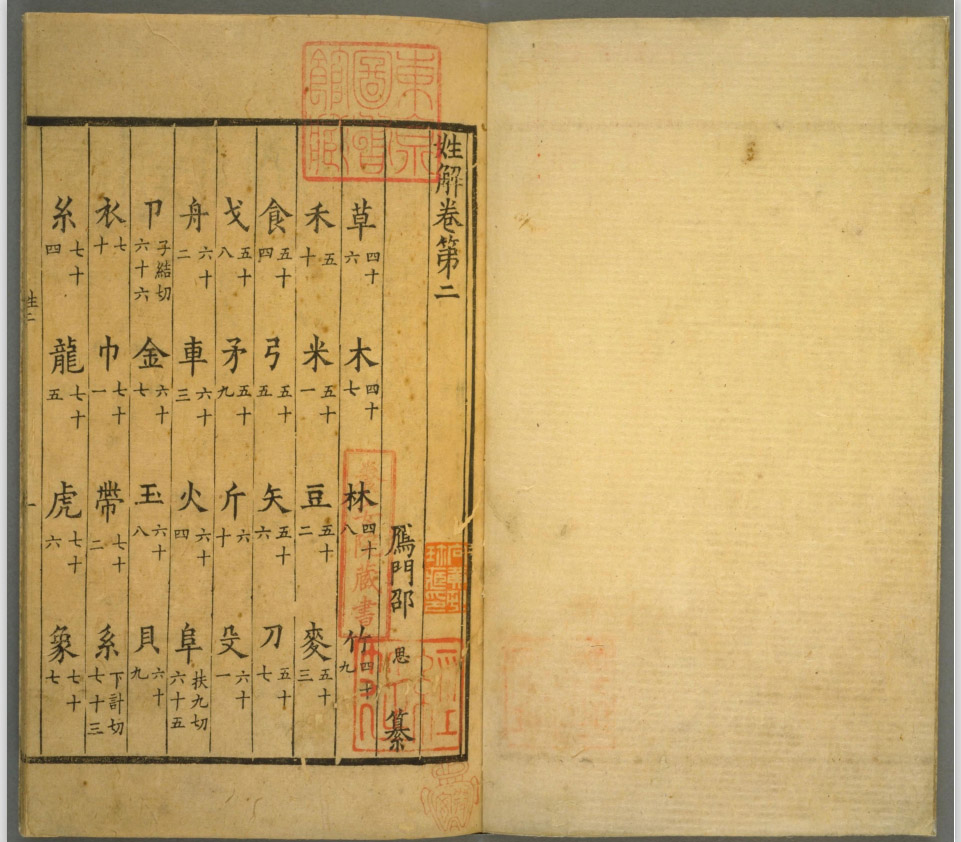 東京圖書館藏
姓解卷第二
鴈門邵 思 纂
草四十六 木四十七 林四十八 竹四十九
禾五十 米五十一 豆五十二 麥五十三
食五十四 弓五十五 矢五十六 刀五十七
戈五十八 矛五十九 斤六十 殳六十一
舟六十二 車六十三 火六十四 阜扶九切六十五
卩子結切六十六 金六十七 玉六十八 貝六十九
衣七十 巾七十一 帶七十二 系下計切七十三
糸七十四 龍七十五 虎七十六 象七十七
養安院藏書